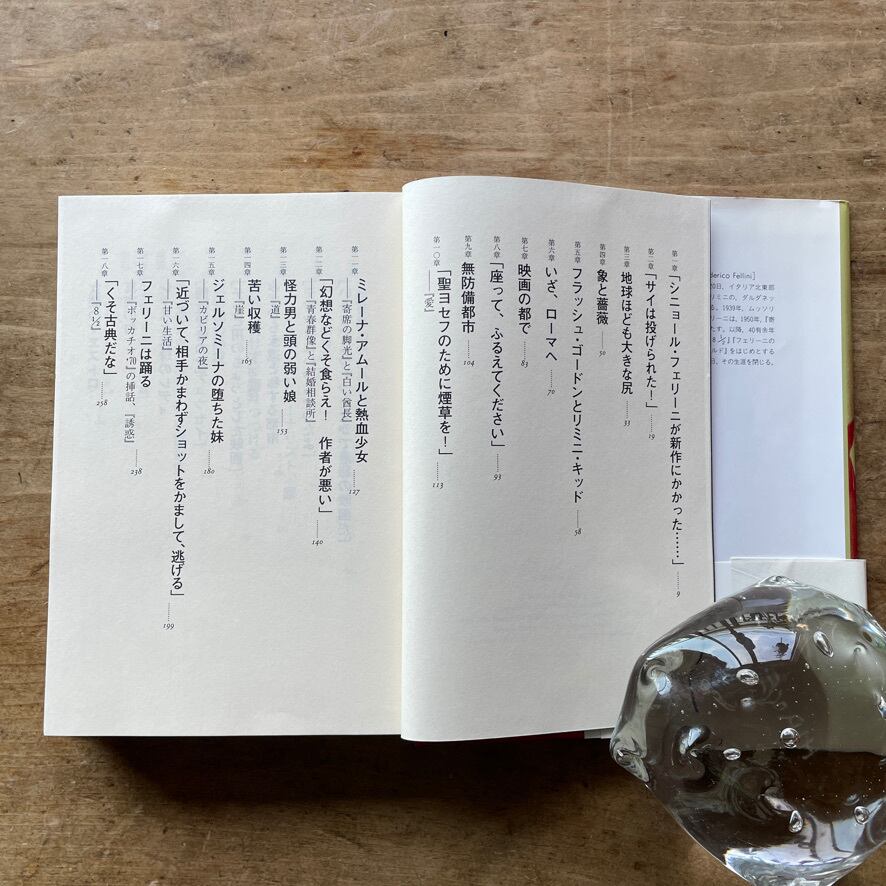 第一章 「シニョール・フェリーニが新作にかかった……」 9
第二章 「サイは投げられた!」 19
第三章 地球ほども大きな尻 33
第四章 象と薔薇 50
第五章 フラッシュ・ゴードンとリミニ・キッド 58
第六章 いざ、ローマへ 70
第七章 映画の都で 83
第八章 「座って、ふるえてください」 93
第九章 無防備都市 104
第一〇章 「聖ヨセフのために煙草を!」 113
——『愛』
第一一章 ミレーナ・アムールと熱血少女 127
——『寄席の脚光』と『白い酋長』
第一二章 「幻想などくそ食らえ! 作者が悪い」 140
——『青春群像』と『結婚相談所』
第一三章 怪力男と頭の弱い娘 153
——『道』
第一四章 苦い収穫 165
——『崖』
第一五章 ジェルソミーナの堕ちた妹 180
——『カビリアの夜』
第一六章 「近づいて、相手かまわずショットをかまして、逃げる」 199
——『甘い生活』
第一七章 フェリーニは踊る 238
——『ボッカチオ'70』の挿話、『誘惑』
第一八章 「くそ古典だな」 258
——『8½』
derico Fellini]
20日、イタリア北東部
リミニの、ダルダネッ
る。1939年、ムッソリ
リーニは、1950年、『寄
たす。以降、40有余年
8½』『フェリーニの
ルド』をはじめとする
日、その生涯を閉じる。